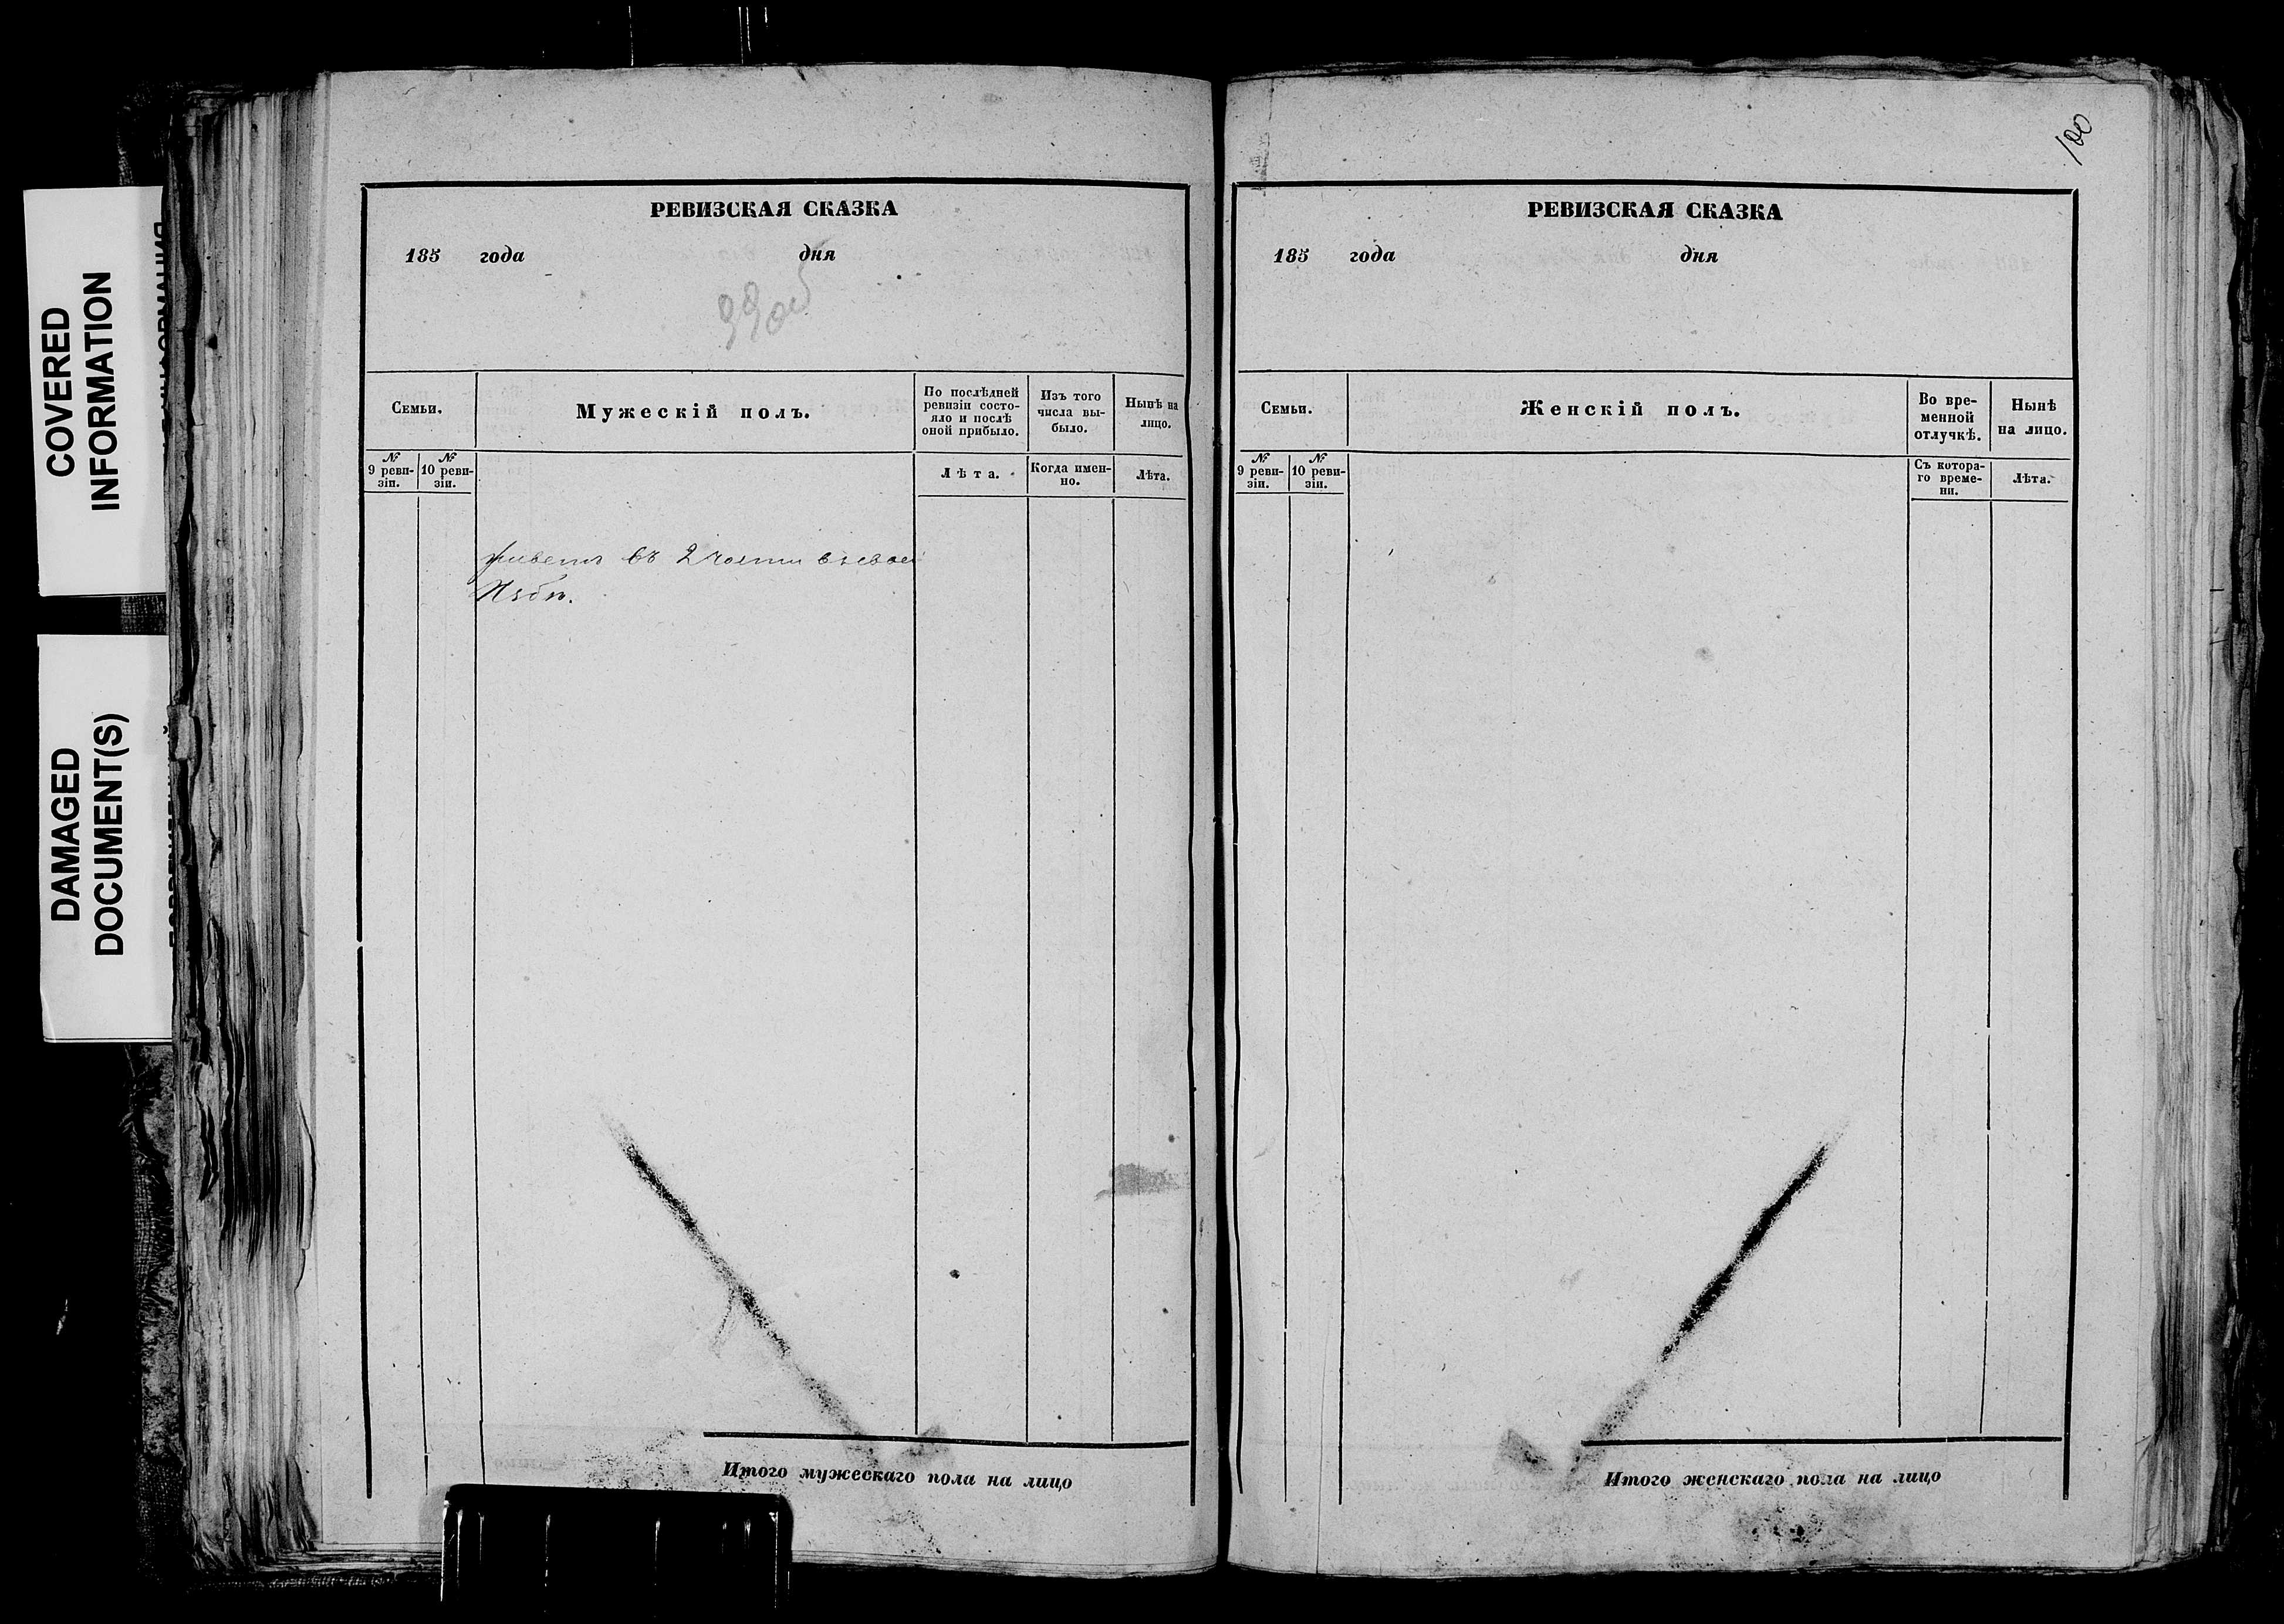 COVERED
INFORMATION
DAMAGED
DOCUMENT(S)
РЕВИЗСКАЯ СКАЗКА
185 года дня
99об
Семьи.
Мужескій полъ.
По послѣдней
ревизіи состо-
яло и послѣ
оной прибыло.
Изъ того
числа вы-
было.
Нынѣ на
лицо.
№
9 реви-
зіи.
№
10 реви-
зіи.
Лѣта.
Когда имен-
но.
Лѣта.
живетъ въ 2 части въ своей
Избѣ.
Итого мужескаго пола на лицо
100
РЕВИЗСКАЯ СКАЗКА
185 года дня
Семьи.
Женскій полъ.
Во вре-
менной
отлучкѣ.
Нынѣ
на лицо.
№
9 реви-
зіи.
№
10 реви-
зіи.
Съ котора-
го време-
ни.
Лѣта.
Итого женскаго пола на лицо